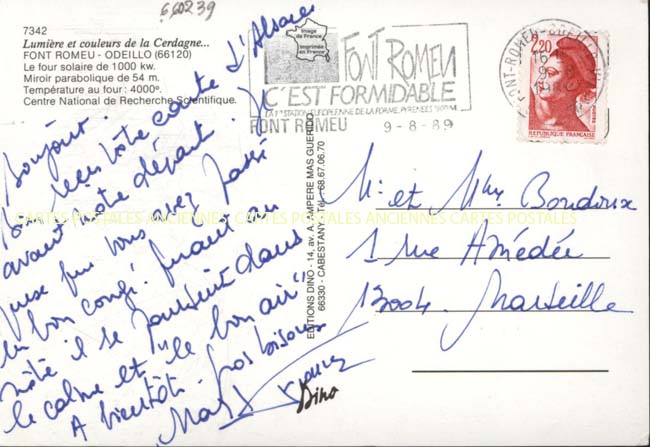 660239
7342
Lumière et couleurs de la Cerdagne...
FONT ROMEU - ODEILLO (66120)
Le four solaire de 1000 kw.
Miroir parabolique de 54 m.
Température au four : 4000°.
Centre National de Recherche Scientifique.
Image de France
Imprimée en France
FONT ROMEU
C'EST FORMIDABLE
LA 1re STATION EUROPEENNE DE LA FORME, PYRENEES
FONT ROMEU 9-8-89
FONT-ROMEU-ODEILLO
16
9-8
2,20
REPUBLIQUE FRANÇAISE
Bonjour.
reçu votre carte d'Alsace
avant notre départ. Je
pense que vous avez passé
un bon congé. Quant au
nôtre il se poursuit dans
le calme et "le bon air"
A bientôt. Gros bisous
EDITIONS DINO - 14, av. A. AMPERE MAS GUERIDO
66330 - CABESTANY - Tél. 68.67.06.70
Dino
Mr et Mme Boudoux
1 rue Amédée
13004. Marseille
CARTES POSTALES ANCIENNES CARTES POSTALES